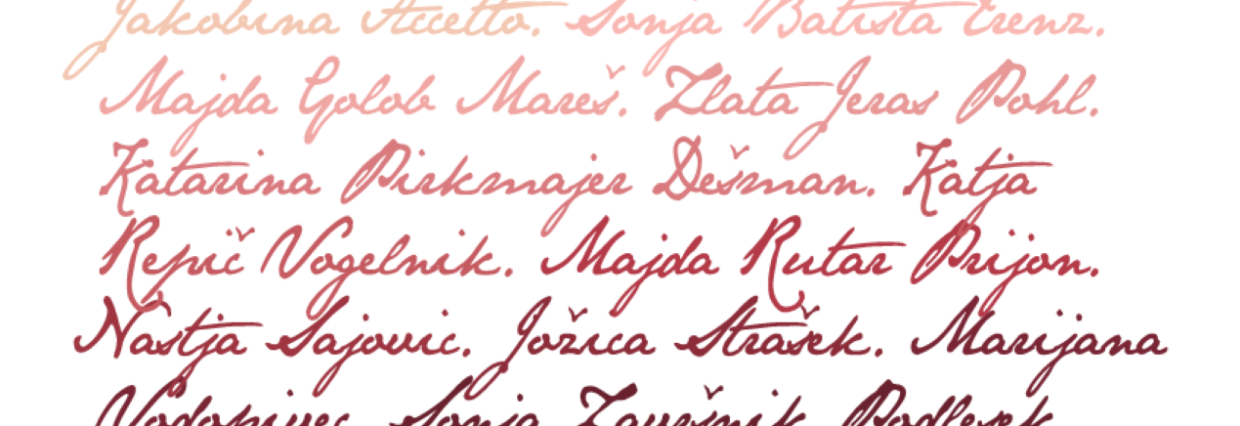 Jakobina Accetto. Sonja Batista Erenz.
Majda Golob Mareš. Zlata Jeras Pohl.
Katarina Pirkmajer Dešman. Katja
Repič Vogelnik. Majda Rutar Prijon.
Nastja Sajovic. Jožica Strašek. Marijana
Vodopivec. Sonja Završnik Podlesek